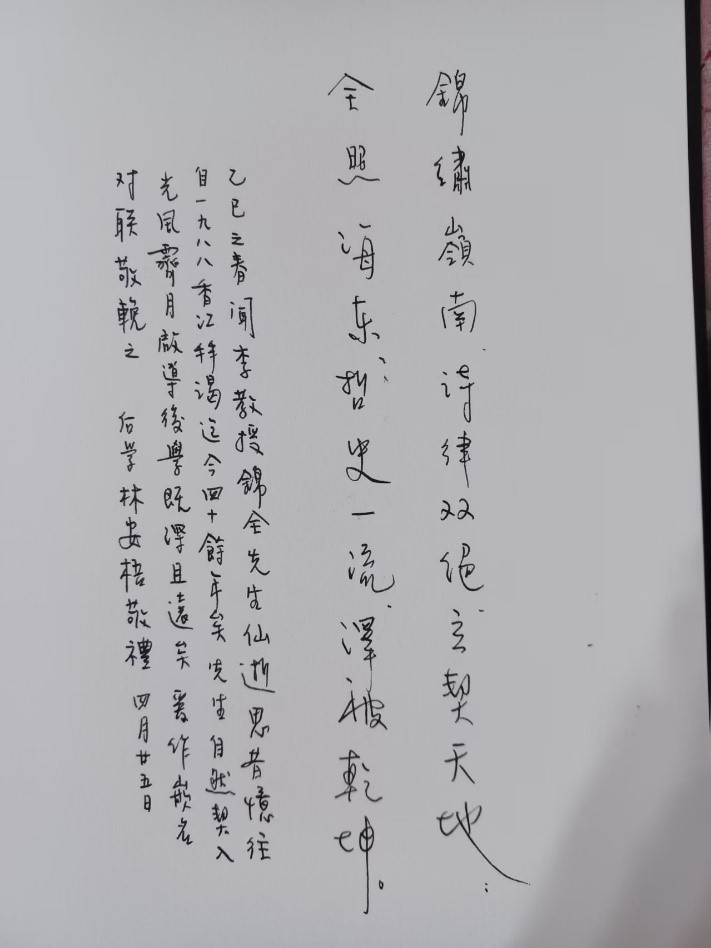 錦繡嶺南诗律双绝玄契天地：
全照海东哲史一流澤被乾坤。
乙巳之春闻李教授錦全先生仙逝思昔憶往
自一九八八香江拜谒迄今四十餘年矣先生自然契入
光風霽月啟導後學既深且遠矣爰作嵌名
对联敬輓之 后学林安梧敬禮 四月廿五日